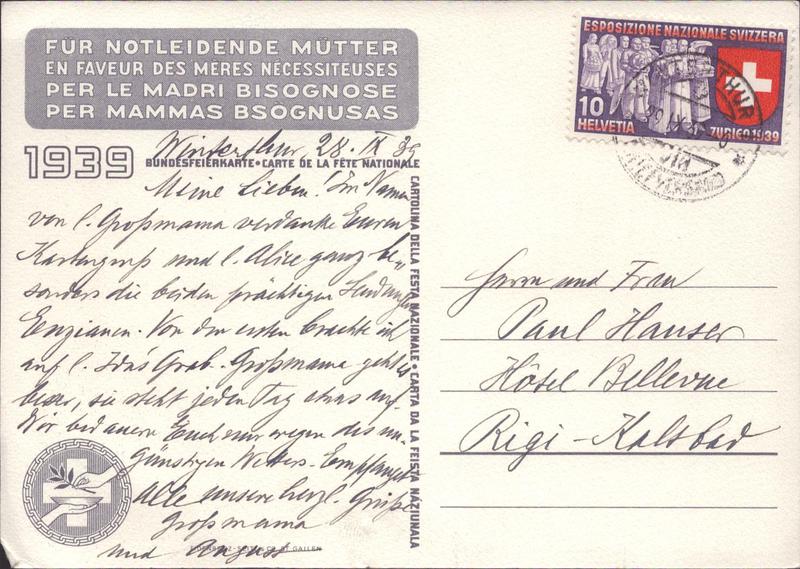 FÜR NOTLEIDENDE MÜTTER
EN FAVEUR DES MÈRES NÉCESSITEUSES
PER LE MADRI BISOGNOSE
PER MAMMAS BSOGNUSAS
1939
BUNDESFEIERKARTE • CARTE DE LA FÊTE NATIONALE
CARTOLINA DELLA FESTA NAZIONALE • CARTA DA LA FEISTA NAZIUNALA
Winterthur 28. IX 39
Meine Lieben! Im Namen
von l. Großmama verdanke Euren
Kartengruß und l. Alice ganz be-
sonders die beiden prächtigen Sendungen
Enzianen. Von den ersten brachte ich
auf l. Idas Grab. Großmama geht es
besser, sie steht jeden Tag etwas auf.
Wir bedauern Euch nur wegen des un-
günstigen Wetters. Empfanget
alle unsere herzl. Grüße
Großmama
und August
ESPOSIZIONE NAZIONALE SVIZZERA
10
HELVETIA
ZURIGO 1939
WINTERTHUR
Herrn und Frau
Paul Hauser
Hôtel Bellevue
Rigi-Kaltbad
ST GALLEN